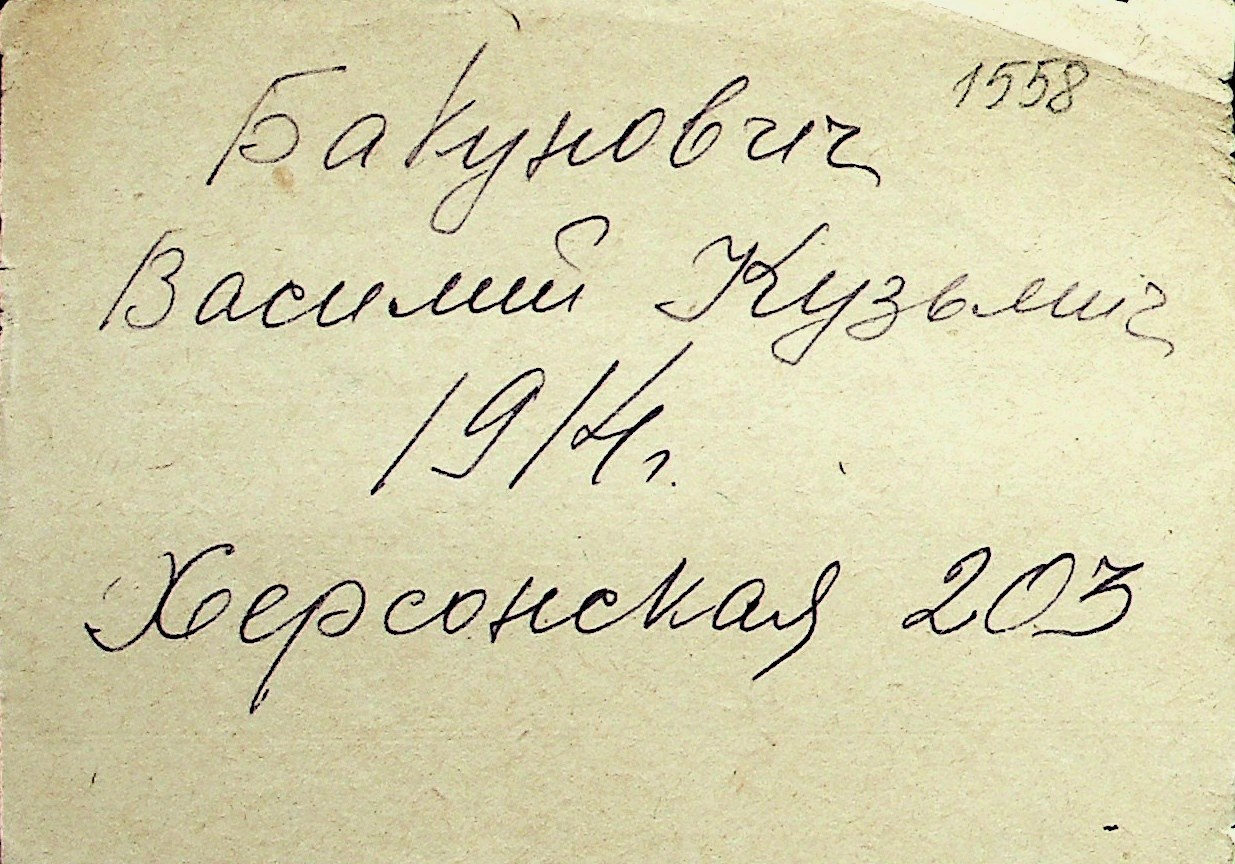 1558
Бакунович
Василий Кузьмич
1914г.
Херсонская 203